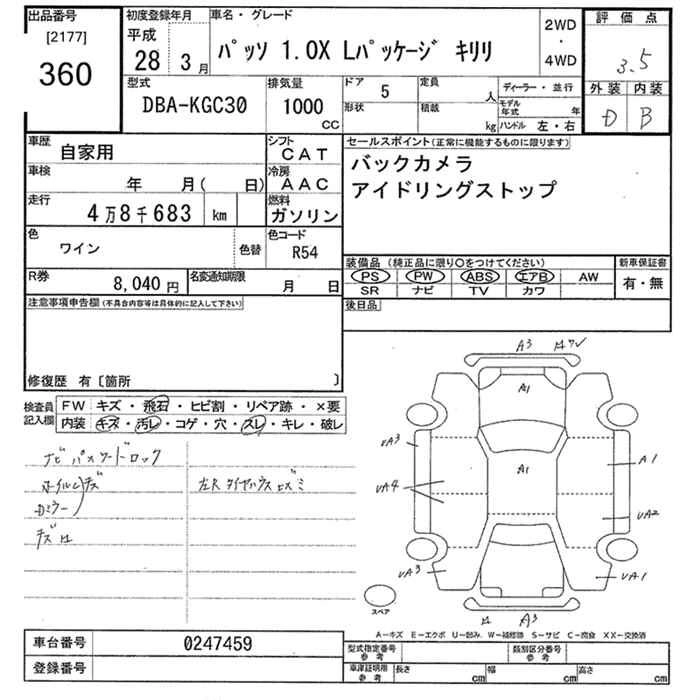 出品番号 初度登録年月 車名・グレード
[2177] 平成
360 28 3月 パッソ 1.0X Lパッケージ キリリ 2WD・4WD
評価点
3.5
外装 内装
D B
型式 排気量 ドア 定員 ディーラー・並行
DBA-KGC30 1000 CC 5 人 モデル年式 年
形状 積載 kg ハンドル 左・右
車歴 自家用 シフト CAT
車検 年 月( 日) 冷房 AAC
走行 4万8千683 km 燃料 ガソリン
色 ワイン 色替 色コード R54
R券 8,040円 名変通知期限 月 日
セールスポイント(正常に機能するものに限ります)
バックカメラ
アイドリングストップ
装備品(純正品に限り○をつけてください) 新車保証書
PS PW ABS エアB AW 有・無
SR ナビ TV カワ
後日品
注意事項申告欄(不具合内容等は具体的に記入して下さい)
修復歴 有〔箇所 〕
検査員記入欄 FW キズ・飛石・ヒビ割・リペア跡・×要
内装 キズ・汚レ・コゲ・穴・スレ・キレ・破レ
ナビ パスワードロック
ホイルキズ 左R タイヤハウス ヒズミ
Dミラー
キズ
A3
A1
UA3
A1
A1
UA4
UA2
UA3
UA1
A3
スペア
A-キズ E-エクボ U-凹み W-補修跡 S-サビ C-腐食 XX-交換済
車台番号 0247459
登録番号
型式指定番号 参考 類別区分番号 参考
車庫証明用 参考 長さ cm 幅 cm 高さ cm